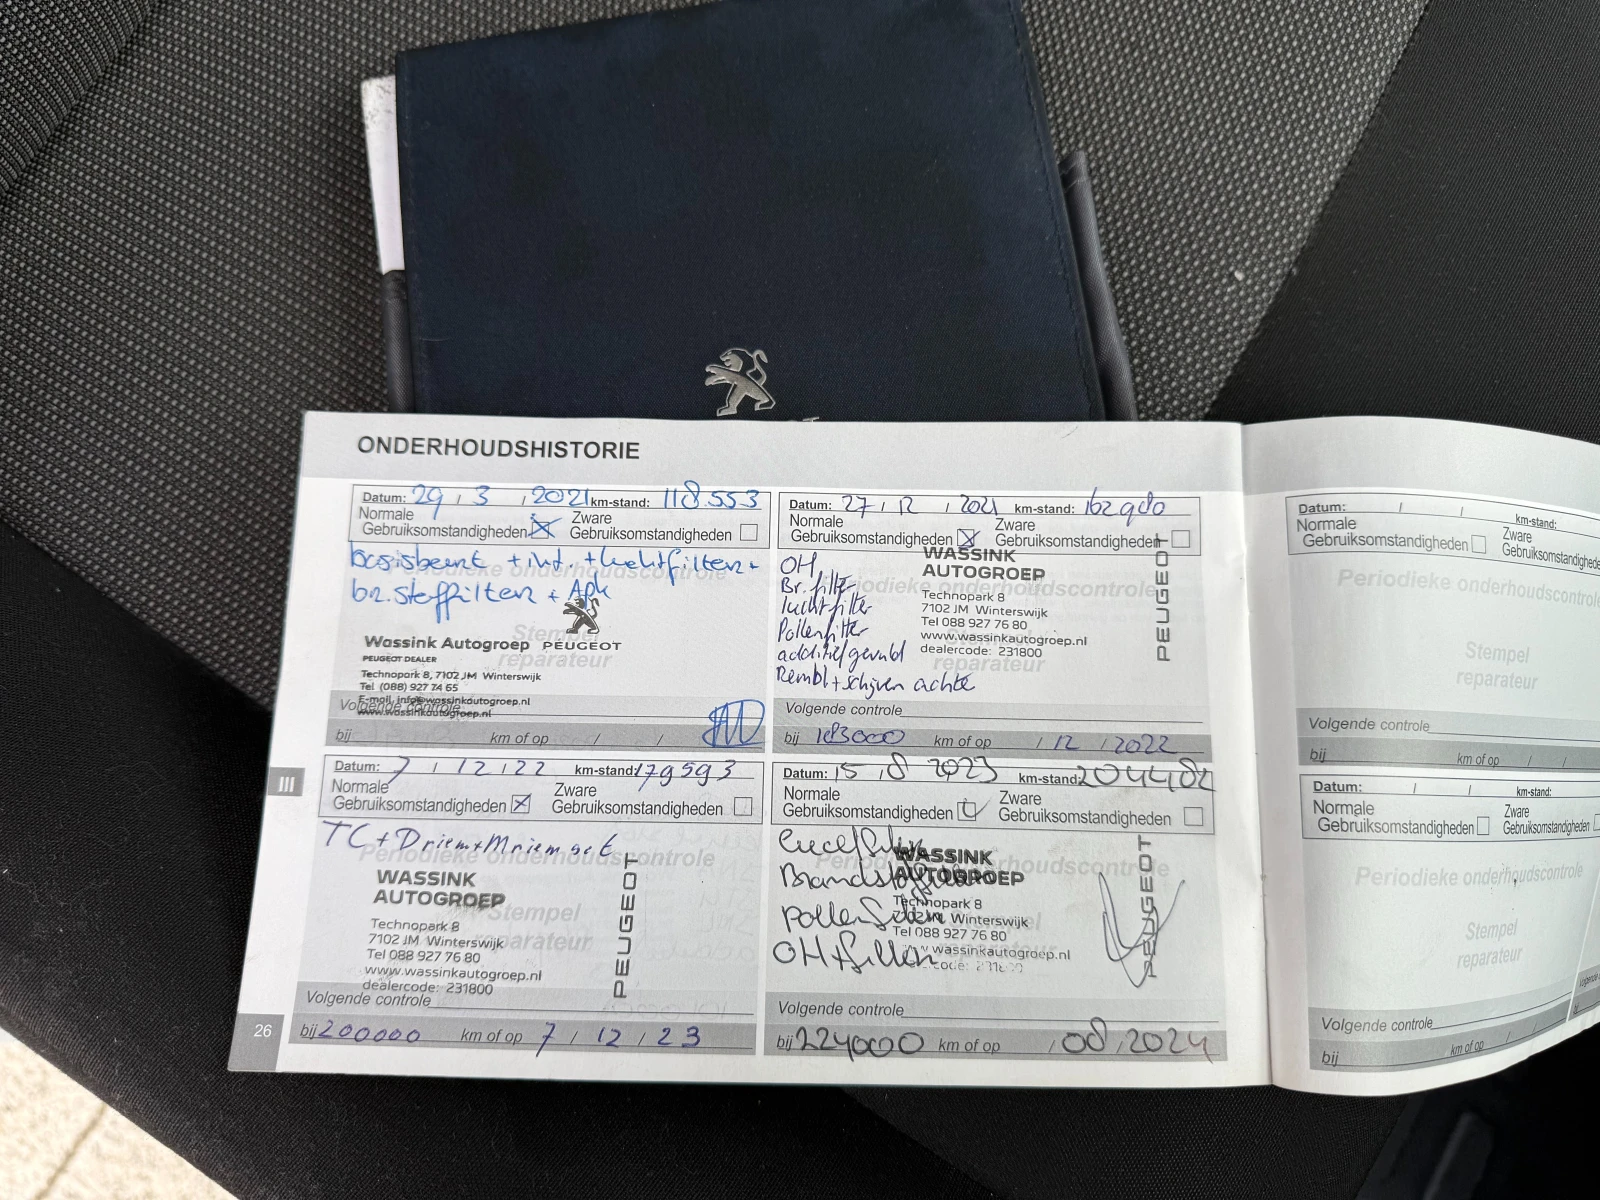 ONDERHOUDSHISTORIE
Datum: 29 / 3 / 2021 km-stand: 118.553
Normale Gebruiksomstandigheden
Zware Gebruiksomstandigheden
+ luchtfilter +
br.stoffilter + Apk
Periodieke onderhoudscontrole
Stempel
reparateur
Wassink Autogroep PEUGEOT
PEUGEOT DEALER
Technopark 8, 7102 JM Winterswijk
Tel. (088) 927 74 65
E-mail. info@wassinkautogroep.nl
www.wassinkautogroep.nl
Volgende controle
bij km of op / /
Datum: 27 / 12 / 2021 km-stand:
Normale Gebruiksomstandigheden
Zware Gebruiksomstandigheden
OH
Br. filter
luchtfilter
Pollenfilter
additief gevuld
Rembl + schijven achter
Periodieke onderhoudscontrole
reparateur
WASSINK
AUTOGROEP
Technopark 8
7102 JM Winterswijk
Tel 088 927 76 80
www.wassinkautogroep.nl
dealercode: 231800
PEUGEOT
Volgende controle
bij 183000 km of op / 12 / 2022
III
Datum: 7 / 12 / 22 km-stand: 179593
Normale Gebruiksomstandigheden
Zware Gebruiksomstandigheden
TC + Driem + Mriem set
Periodieke onderhoudscontrole
Stempel
reparateur
WASSINK
AUTOGROEP
Technopark 8
7102 JM Winterswijk
Tel 088 927 76 80
www.wassinkautogroep.nl
dealercode: 231800
PEUGEOT
Volgende controle
bij 200000 km of op 7 / 12 / 23
26
Datum: 15 / 8 2023 km-stand: 204482
Normale Gebruiksomstandigheden
Zware Gebruiksomstandigheden
Brandstoffilter
pollenfilter
OH + filter
Periodieke onderhoudscontrole
WASSINK
AUTOGROEP
Technopark 8
7102 JM Winterswijk
Tel 088 927 76 80
www.wassinkautogroep.nl
PEUGEOT
Volgende controle
bij 224000 km of op / 08 / 2024
Datum: / / km-stand:
Normale Gebruiksomstandigheden
Zware Gebruiksomstandigheden
Periodieke onderhoudscontrole
Stempel
reparateur
Volgende controle
bij km of op / /
Datum: / / km-stand:
Normale Gebruiksomstandigheden
Zware Gebruiksomstandigheden
Periodieke onderhoudscontrole
Stempel
reparateur
Volgende controle
bij km of op / /